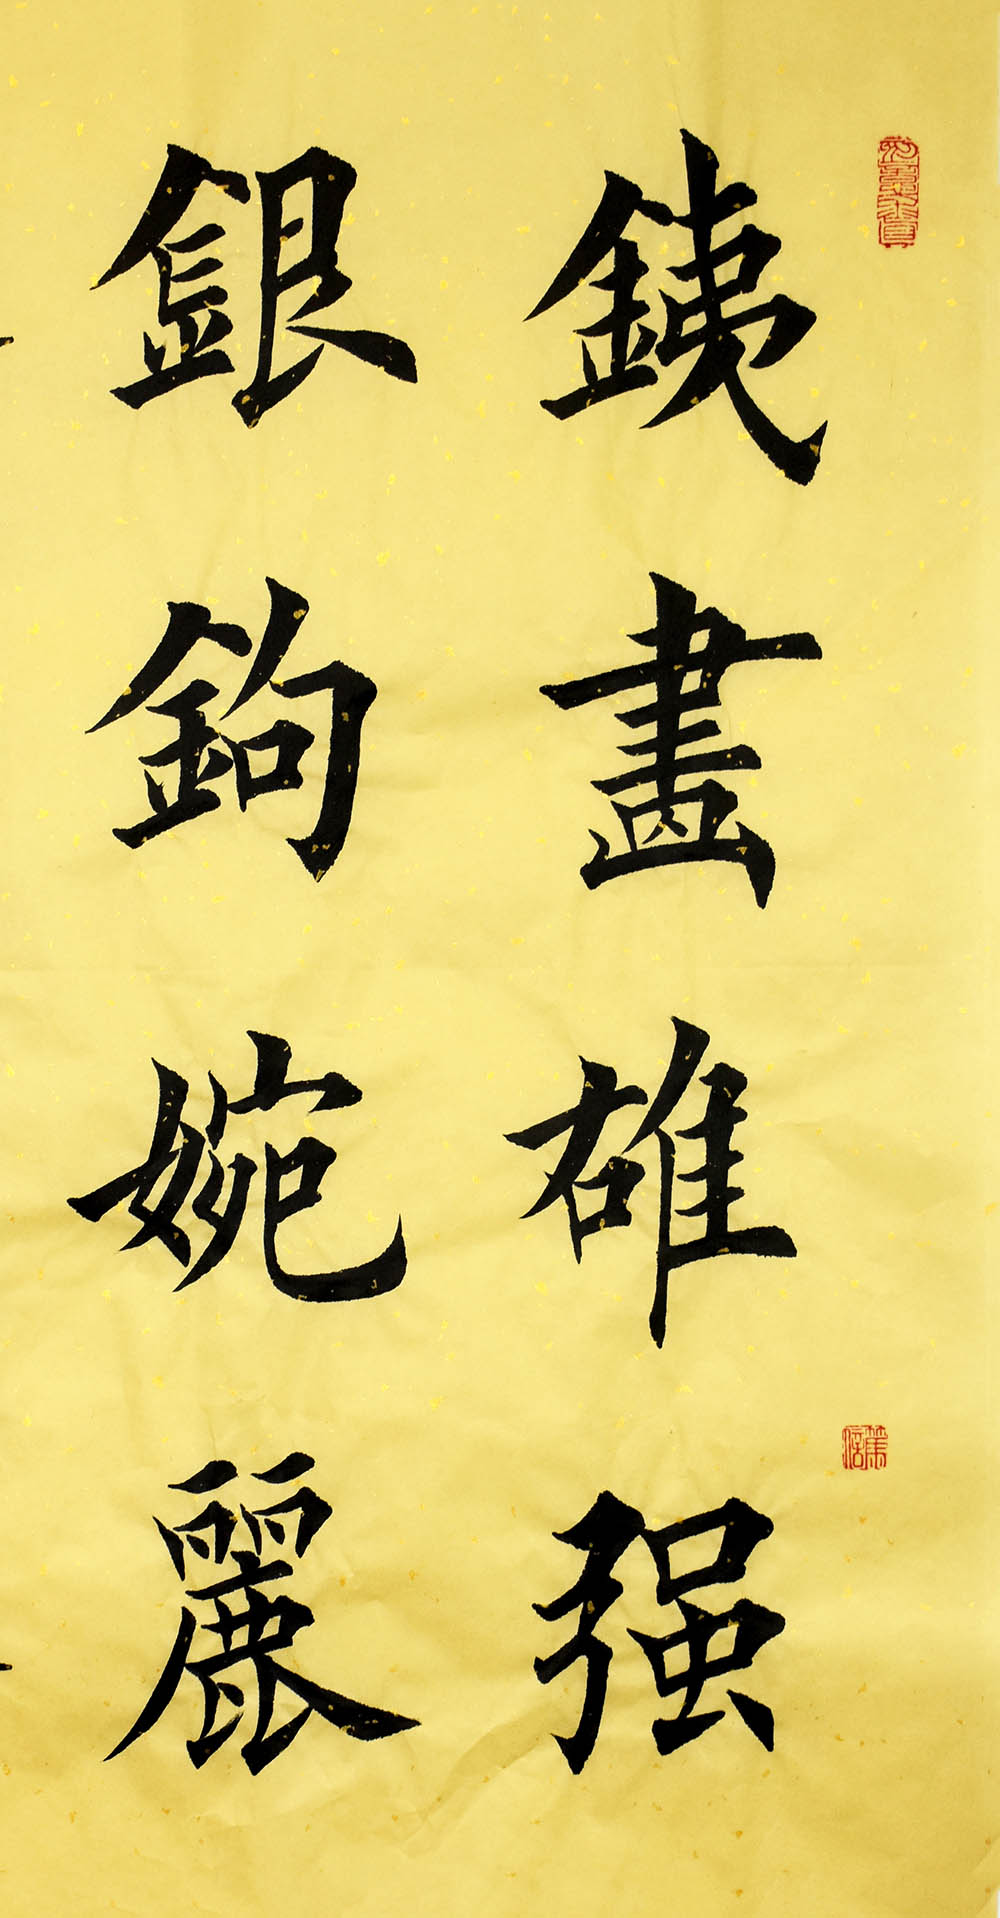 銕畫雄强
銀鉤婉麗